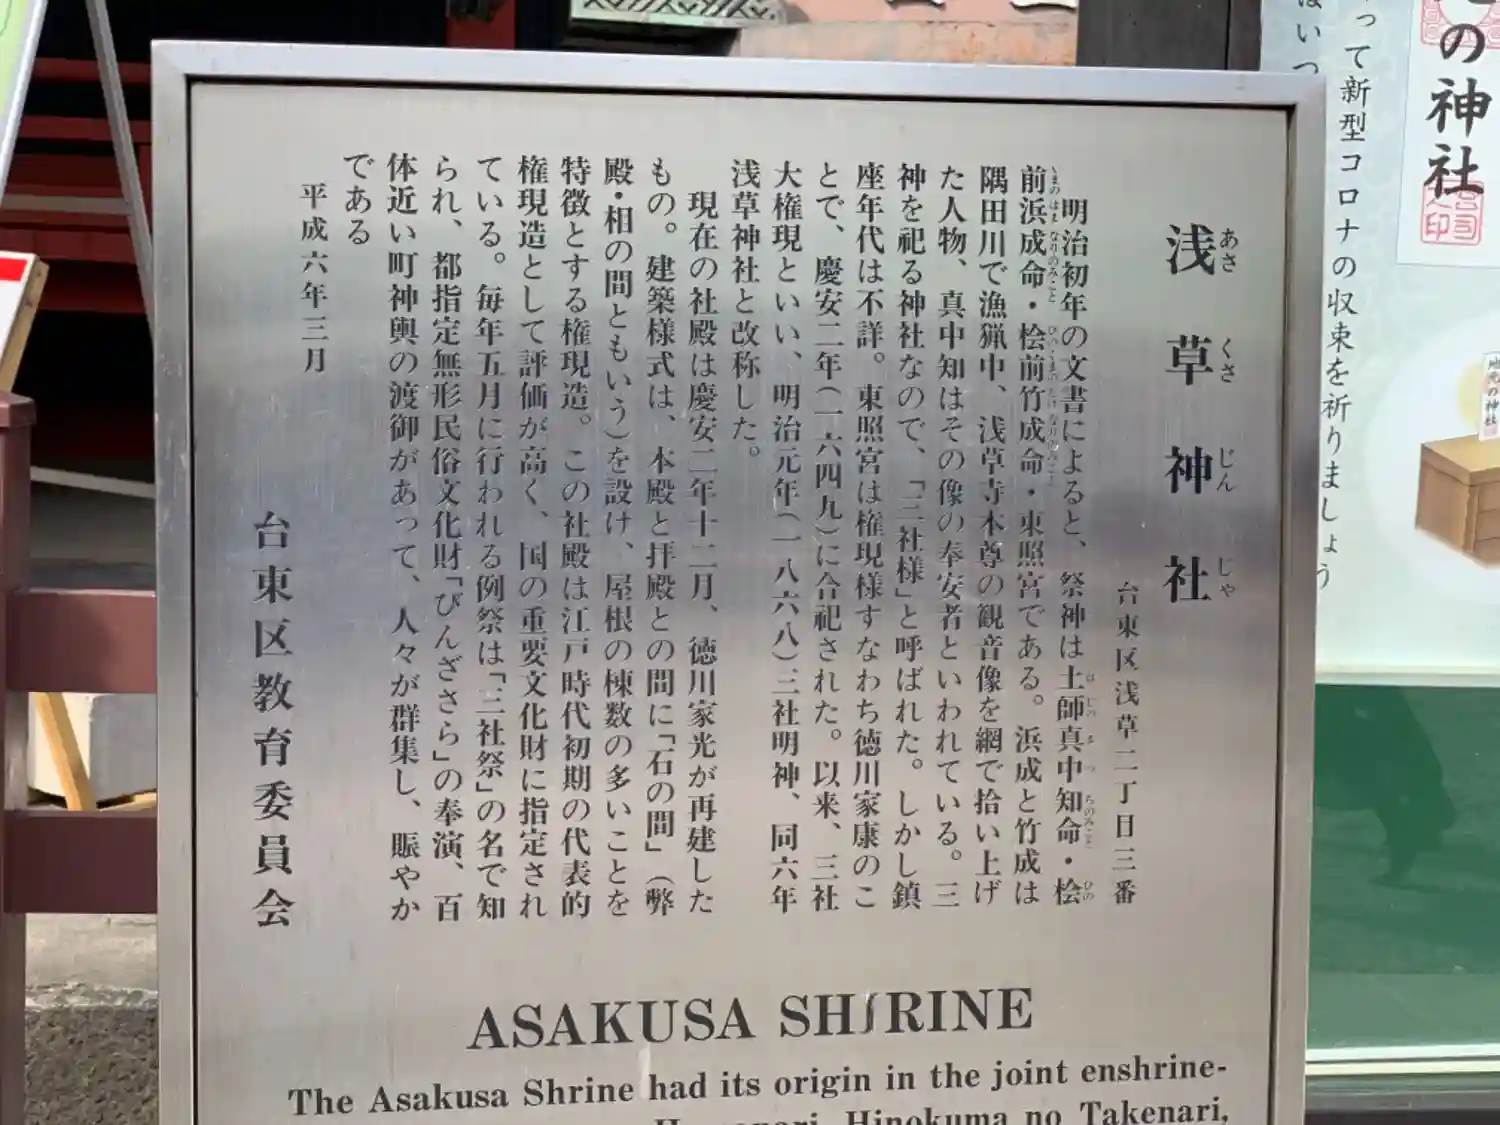 浅草神社
あさくさじんじゃ
台東区浅草二丁目三番
明治初年の文書によると、祭神は土師真中知命・桧
前浜成命・桧前竹成命・東照宮である。浜成と竹成は
隅田川で漁猟中、浅草寺本尊の観音像を網で拾い上げ
た人物、真中知はその像の奉安者といわれている。三
神を祀る神社なので、「三社様」と呼ばれた。しかし鎮
座年代は不詳。東照宮は権現様すなわち徳川家康のこ
とで、慶安二年(一六四九)に合祀された。以来、三社
大権現といい、明治元年(一八六八)三社明神、同六年
浅草神社と改称した。
現在の社殿は慶安二年十二月、徳川家光が再建した
もの。建築様式は、本殿と拝殿との間に「石の間」(弊
殿・相の間ともいう)を設け、屋根の棟数の多いことを
特徴とする権現造。この社殿は江戸時代初期の代表的
権現造として評価が高く、国の重要文化財に指定され
ている。毎年五月に行われる例祭は「三社祭」の名で知
られ、都指定無形民俗文化財「びんざさら」の奉演、百
体近い町神輿の渡御があって、人々が群集し、賑やか
である
平成六年三月
台東区教育委員会
ASAKUSA SHRINE
The Asakusa Shrine had its origin in the joint enshrine-
Hinokuma no Takenari,
の神社
って新型コロナの収束を祈りましょう
はいつ